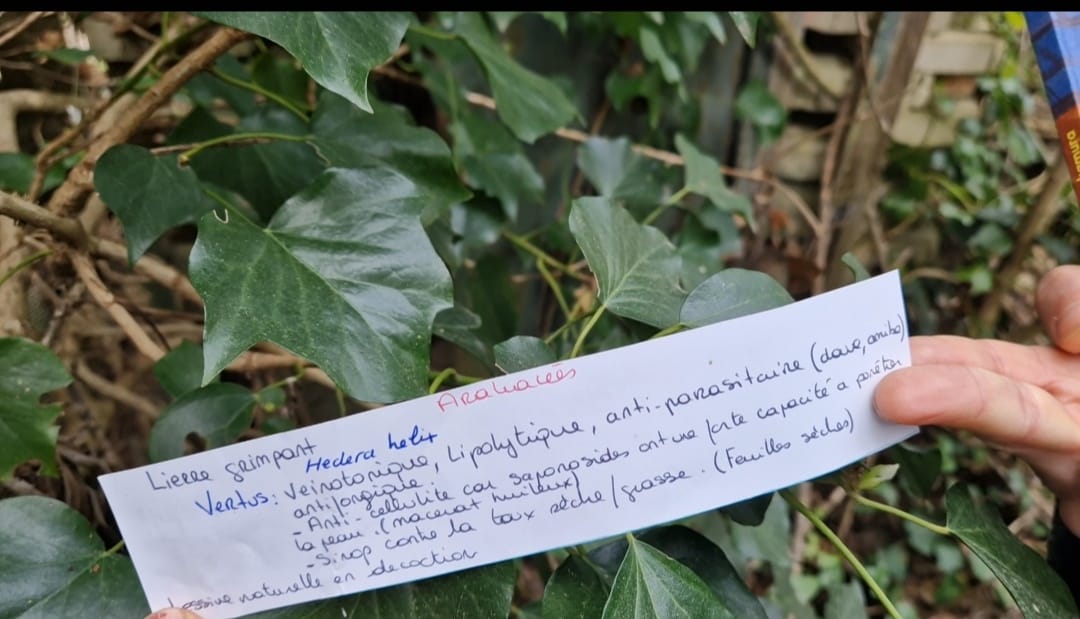 Araliacées
Lierre grimpant
Hedera helix
Vertus: Veinotonique, Lipolytique, anti-parasitaire (douve, amibe)
antifongique.
- Anti-cellulite car saponosides ont une forte capacité a pénétrer
la peau. (macerat huileux)
- Sirop contre la toux sèche/grasse. (Feuilles sèches)
Lessive naturelle en decoction